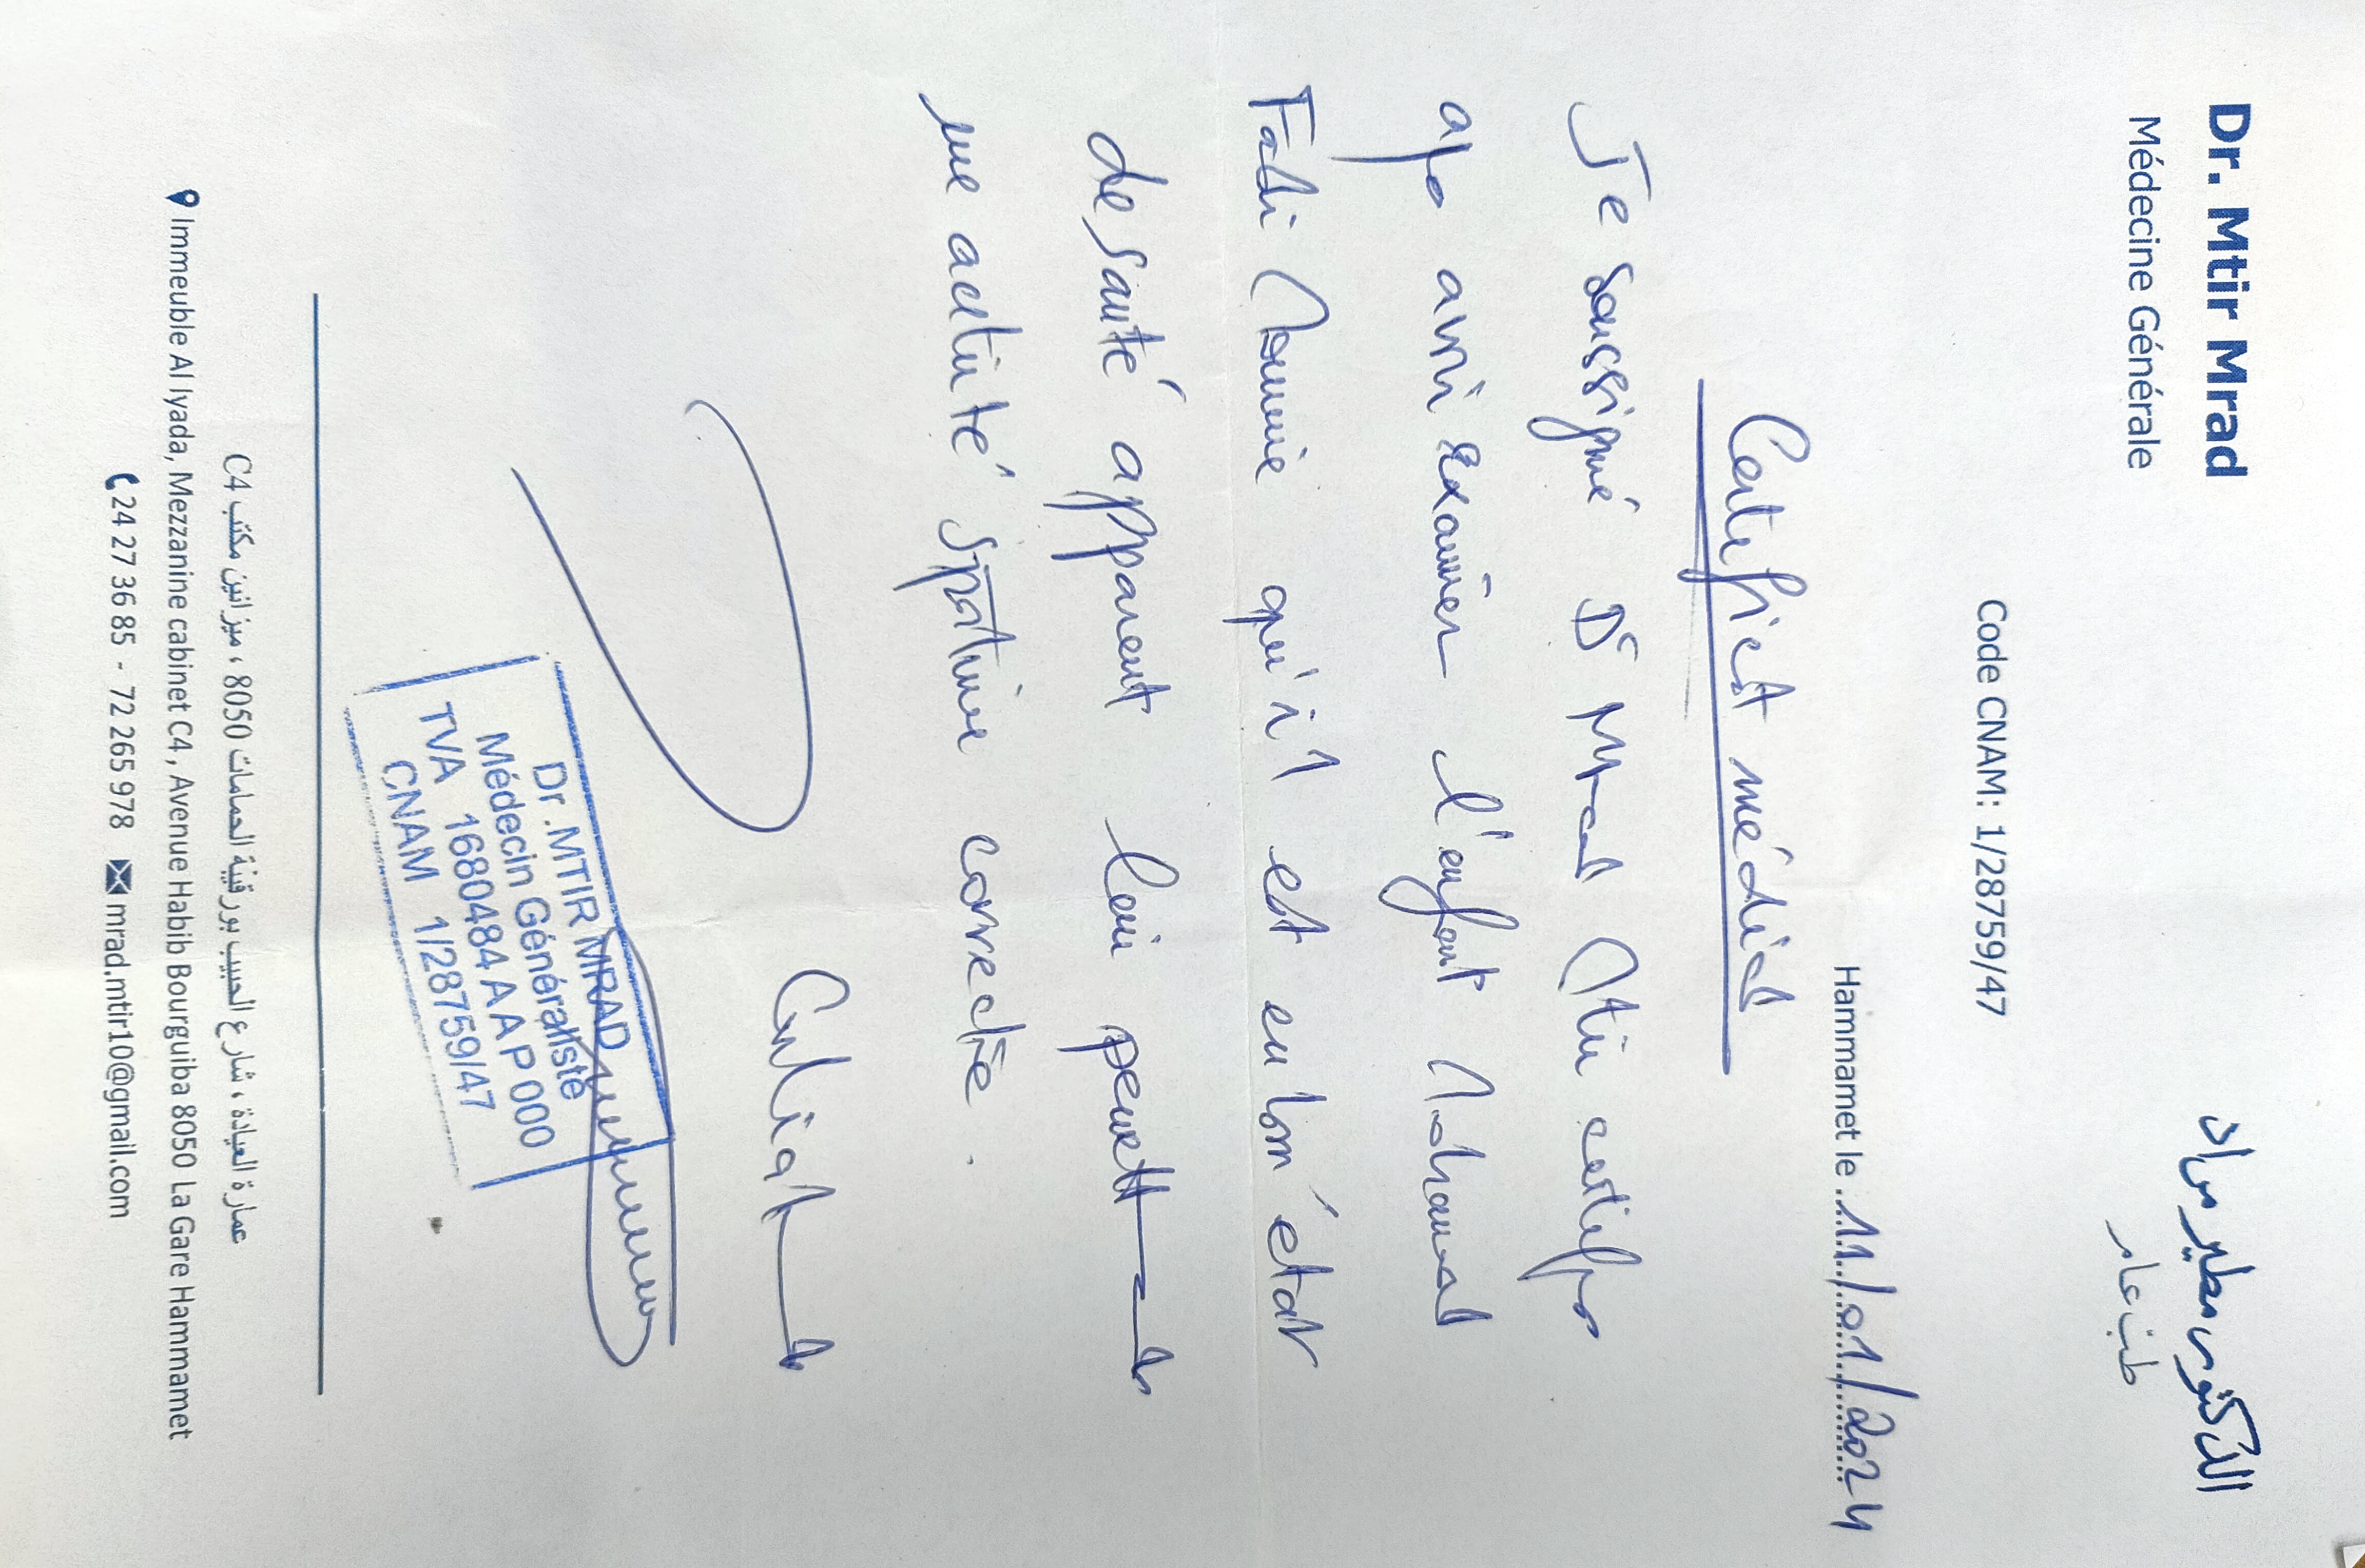 Dr. Mtir Mrad
Médecine Générale
الدكتور مطير مراد
طب عام
Code CNAM: 1/28759/47
Hammamet le 11/01/2024
Certificat médical
Je soussigné Dr Mrad Mtir certifie
avoir examiner l'enfant Mohamed
Fadi qu'il est en bon état
de santé apparent lui permettant
une activité sportive correcte.
Dr .MTIR MRAD
Médecin Généraliste
TVA 1680484 A A P 000
CNAM 1/28759/47
عمارة العيادة ، شارع الحبيب بورقيبة الحمامات 8050 ، ميزانين مكتب C4
Immeuble Al Iyada, Mezzanine cabinet C4 , Avenue Habib Bourguiba 8050 La Gare Hammamet
24 27 36 85 - 72 265 978 mrad.mtir10@gmail.com